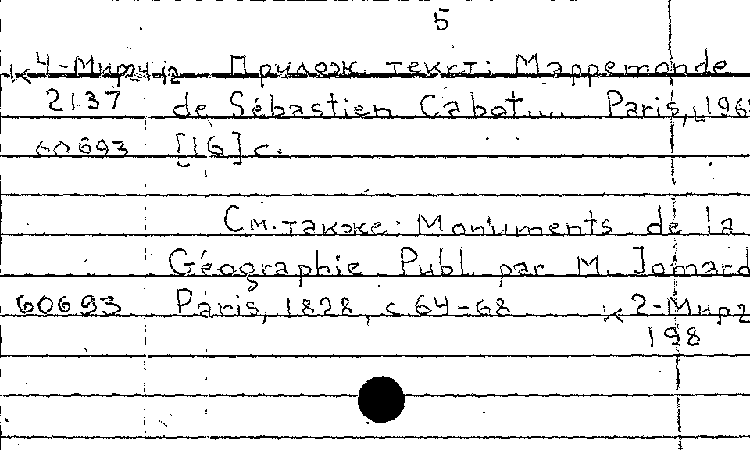 5
к 4-Мир Прилож. текст: Mappemonde
2137 de Sébastien Cabot.... Paris, 196
60693 [16] с.
См. также: Monuments de la
Géographie Publ. par M. Jomard
60693 Paris, 1828, с. 64-68 к 2-Мир
198